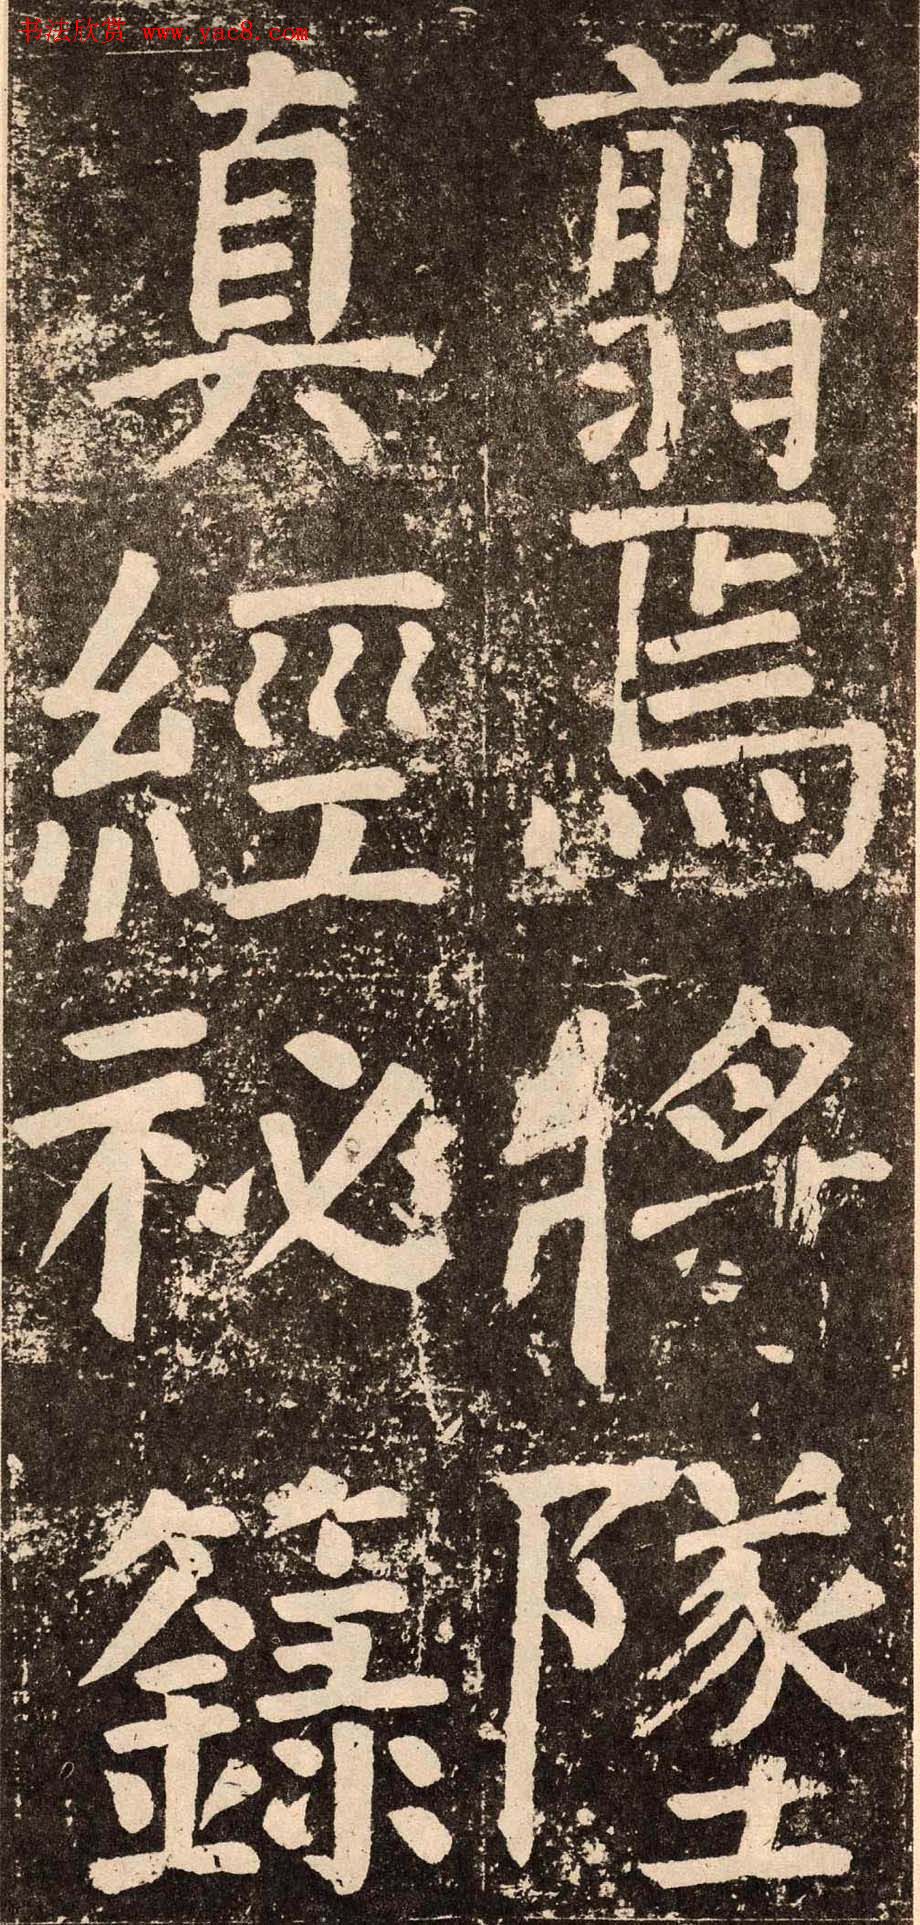 书法欣赏 www.yac8.com
翦焉將墜
真經祕籙